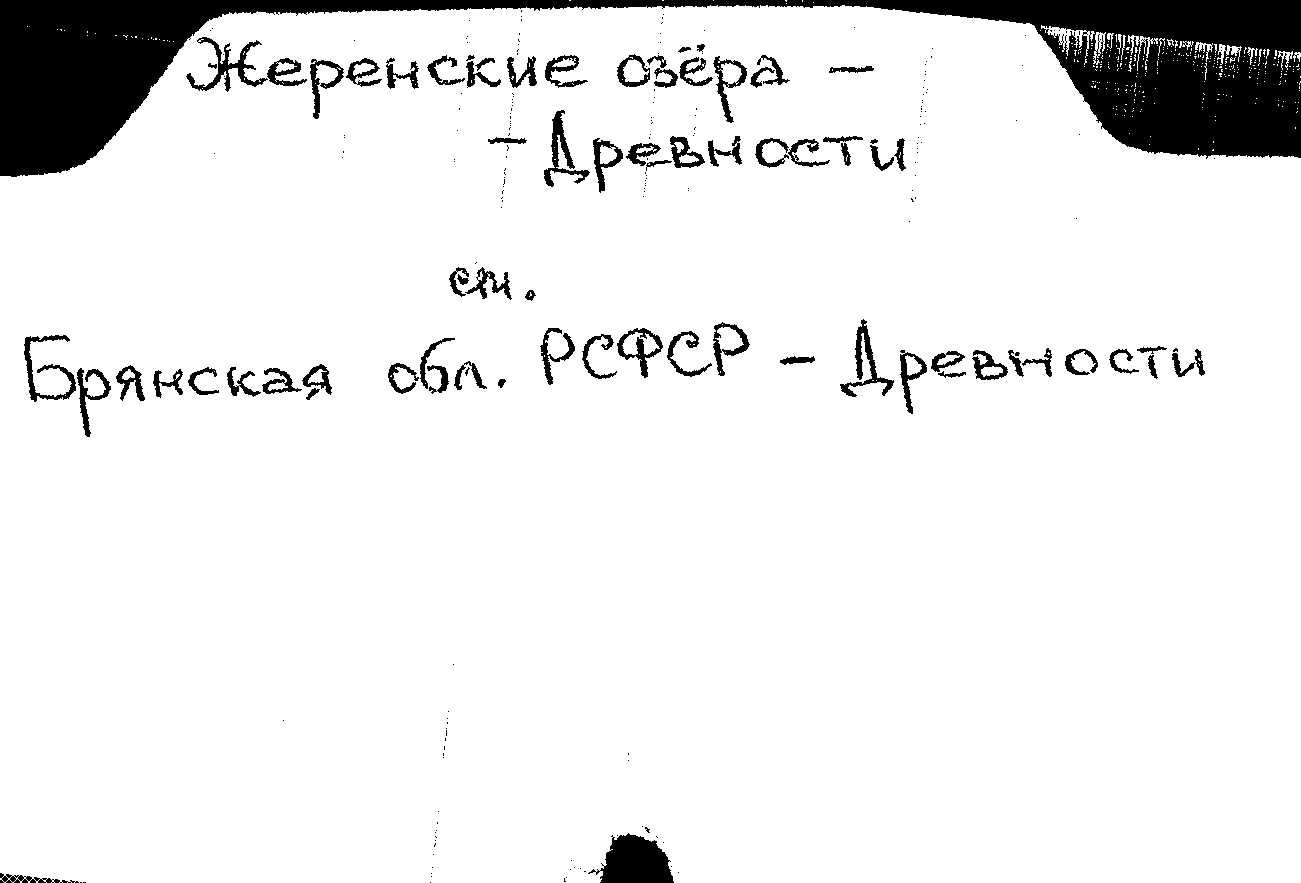 Жеренские озёра –
– Древности
см.
Брянская обл. РСФСР – Древности